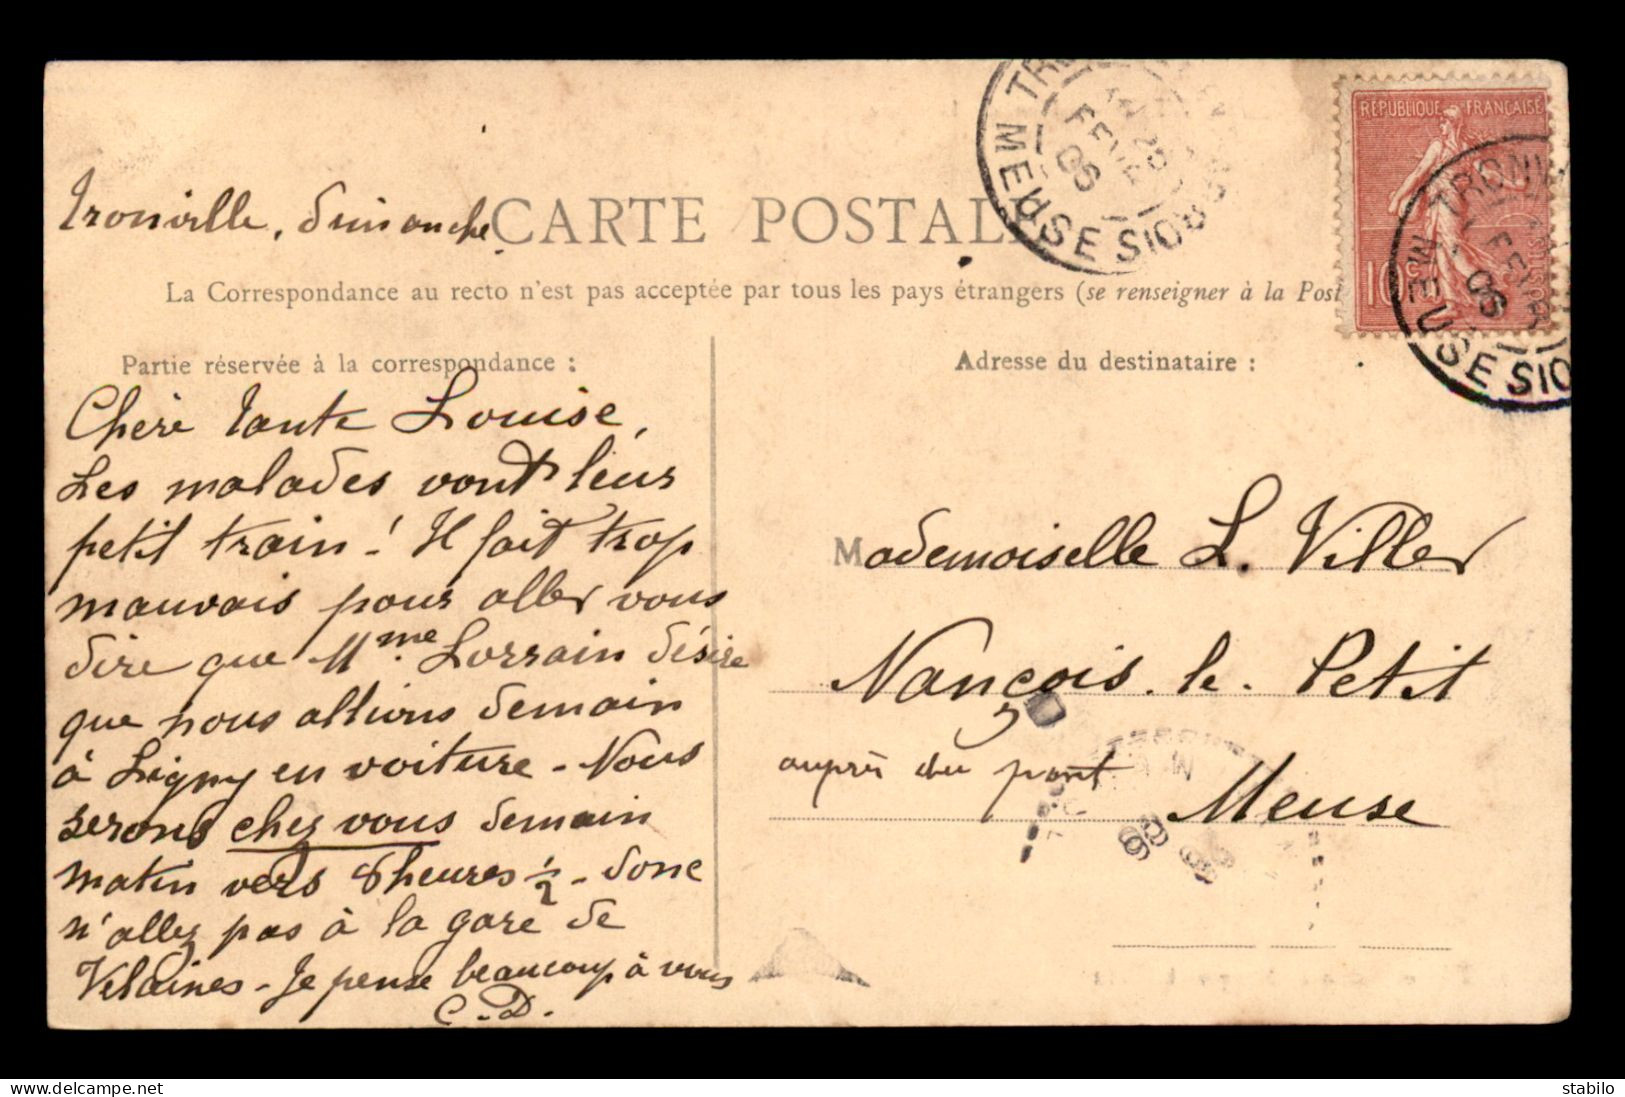 Tronville, dimanche
CARTE POSTALE
La Correspondance au recto n'est pas acceptée par tous les pays étrangers (se renseigner à la Post
Partie réservée à la correspondance :
Chère tante Louise,
Les malades vont leur
petit train ! Il fait trop
mauvais pour aller vous
dire que Mme. Lorrain désire
que nous allions demain
à Ligny en voiture - Nous
serons chez vous demain
matin vers 8 heures ½ - donc
n'allez pas à la gare de
Velaines - Je pense beaucoup à vous
C. D.
Adresse du destinataire :
Mademoiselle L. Viller
Nançois. le. Petit
auprès du pont
Meuse
RÉPUBLIQUE FRANÇAISE
10c
POSTES
TRONV
FEVR
06
MEUSE
TR
25
FEVR
06
MEUSE
BOIS
delcampe.net
stabilo